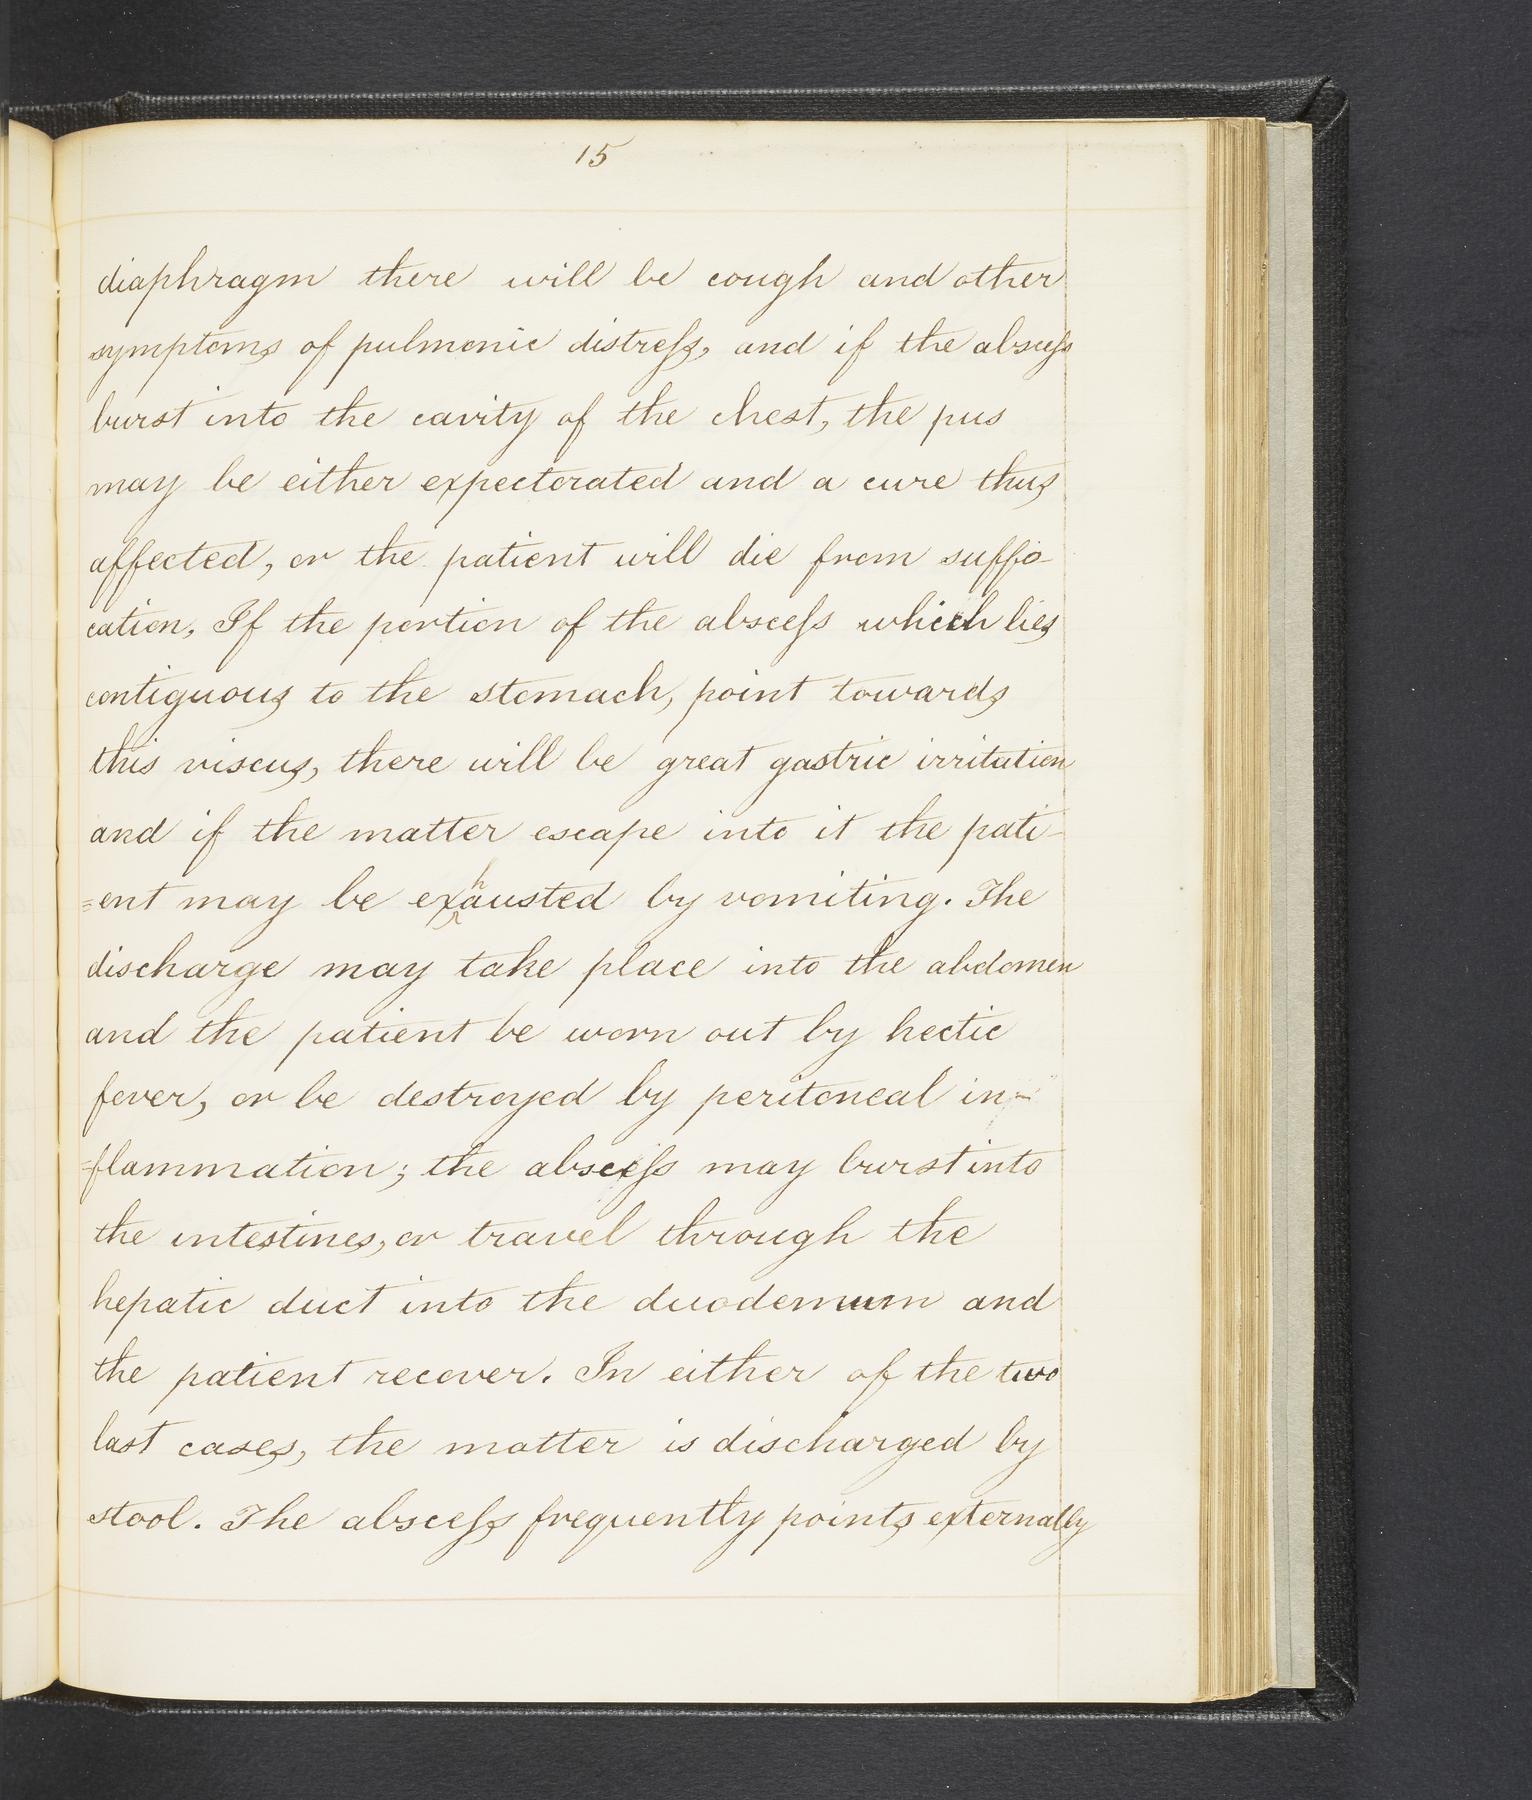 15
diaphragm there will be cough and other
symptoms of pulmonic distress, and if the abscess
burst into the cavity of the chest, the pus
may be either expectorated and a cure thus
affected, or the patient will die from suffo-
cation. If the portion of the abscess which lies
contiguous to the stomach, point towards
this viscus, there will be great gastric irritation
and if the matter escape into it the pati-
=ent may be exhausted by vomiting. The
discharge may take place into the abdomen
and the patient be worn out by hectic
fever, or be destroyed by peritoneal in-
=flammation; the abscess may burst into
the intestines, or travel through the
hepatic duct into the duodemum and
the patient recover. In either of the two
last cases, the matter is discharged by
stool. The abscess frequently points externally